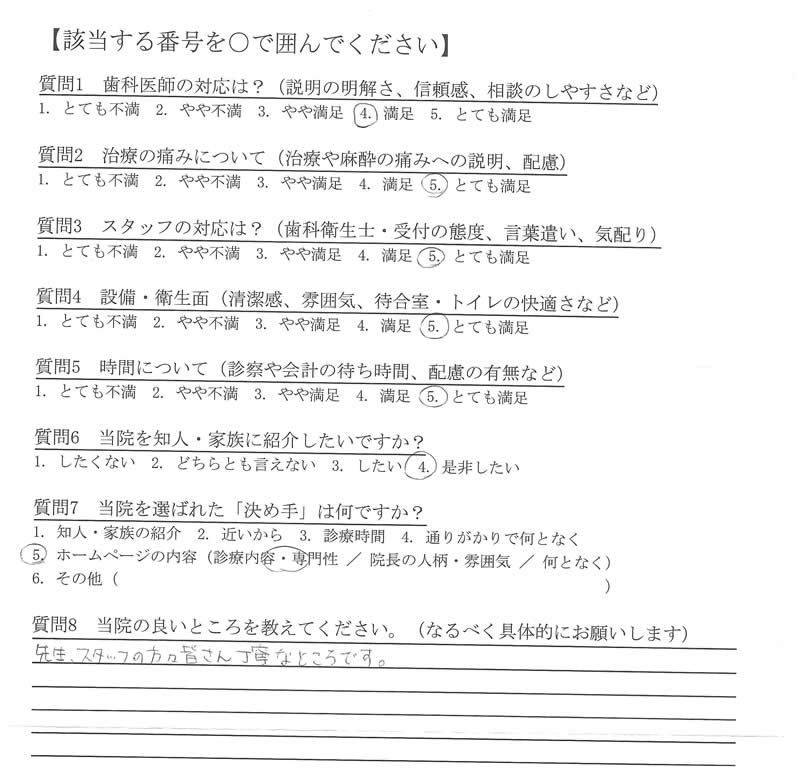 【該当する番号を○で囲んでください】
質問1 歯科医師の対応は？（説明の明解さ、信頼感、相談のしやすさなど）
1. とても不満 2. やや不満 3. やや満足 4. 満足 5. とても満足
質問2 治療の痛みについて（治療や麻酔の痛みへの説明、配慮）
1. とても不満 2. やや不満 3. やや満足 4. 満足 5. とても満足
質問3 スタッフの対応は？（歯科衛生士・受付の態度、言葉遣い、気配り）
1. とても不満 2. やや不満 3. やや満足 4. 満足 5. とても満足
質問4 設備・衛生面（清潔感、雰囲気、待合室・トイレの快適さなど）
1. とても不満 2. やや不満 3. やや満足 4. 満足 5. とても満足
質問5 時間について（診察や会計の待ち時間、配慮の有無など）
1. とても不満 2. やや不満 3. やや満足 4. 満足 5. とても満足
質問6 当院を知人・家族に紹介したいですか？
1. したくない 2. どちらとも言えない 3. したい 4. 是非したい
質問7 当院を選ばれた「決め手」は何ですか？
1. 知人・家族の紹介 2. 近いから 3. 診療時間 4. 通りがかりで何となく
5. ホームページの内容（診療内容・専門性 ／ 院長の人柄・雰囲気 ／ 何となく）
6. その他（ ）
質問8 当院の良いところを教えてください。（なるべく具体的にお願いします）
先生、スタッフの方々皆さん丁寧なところです。